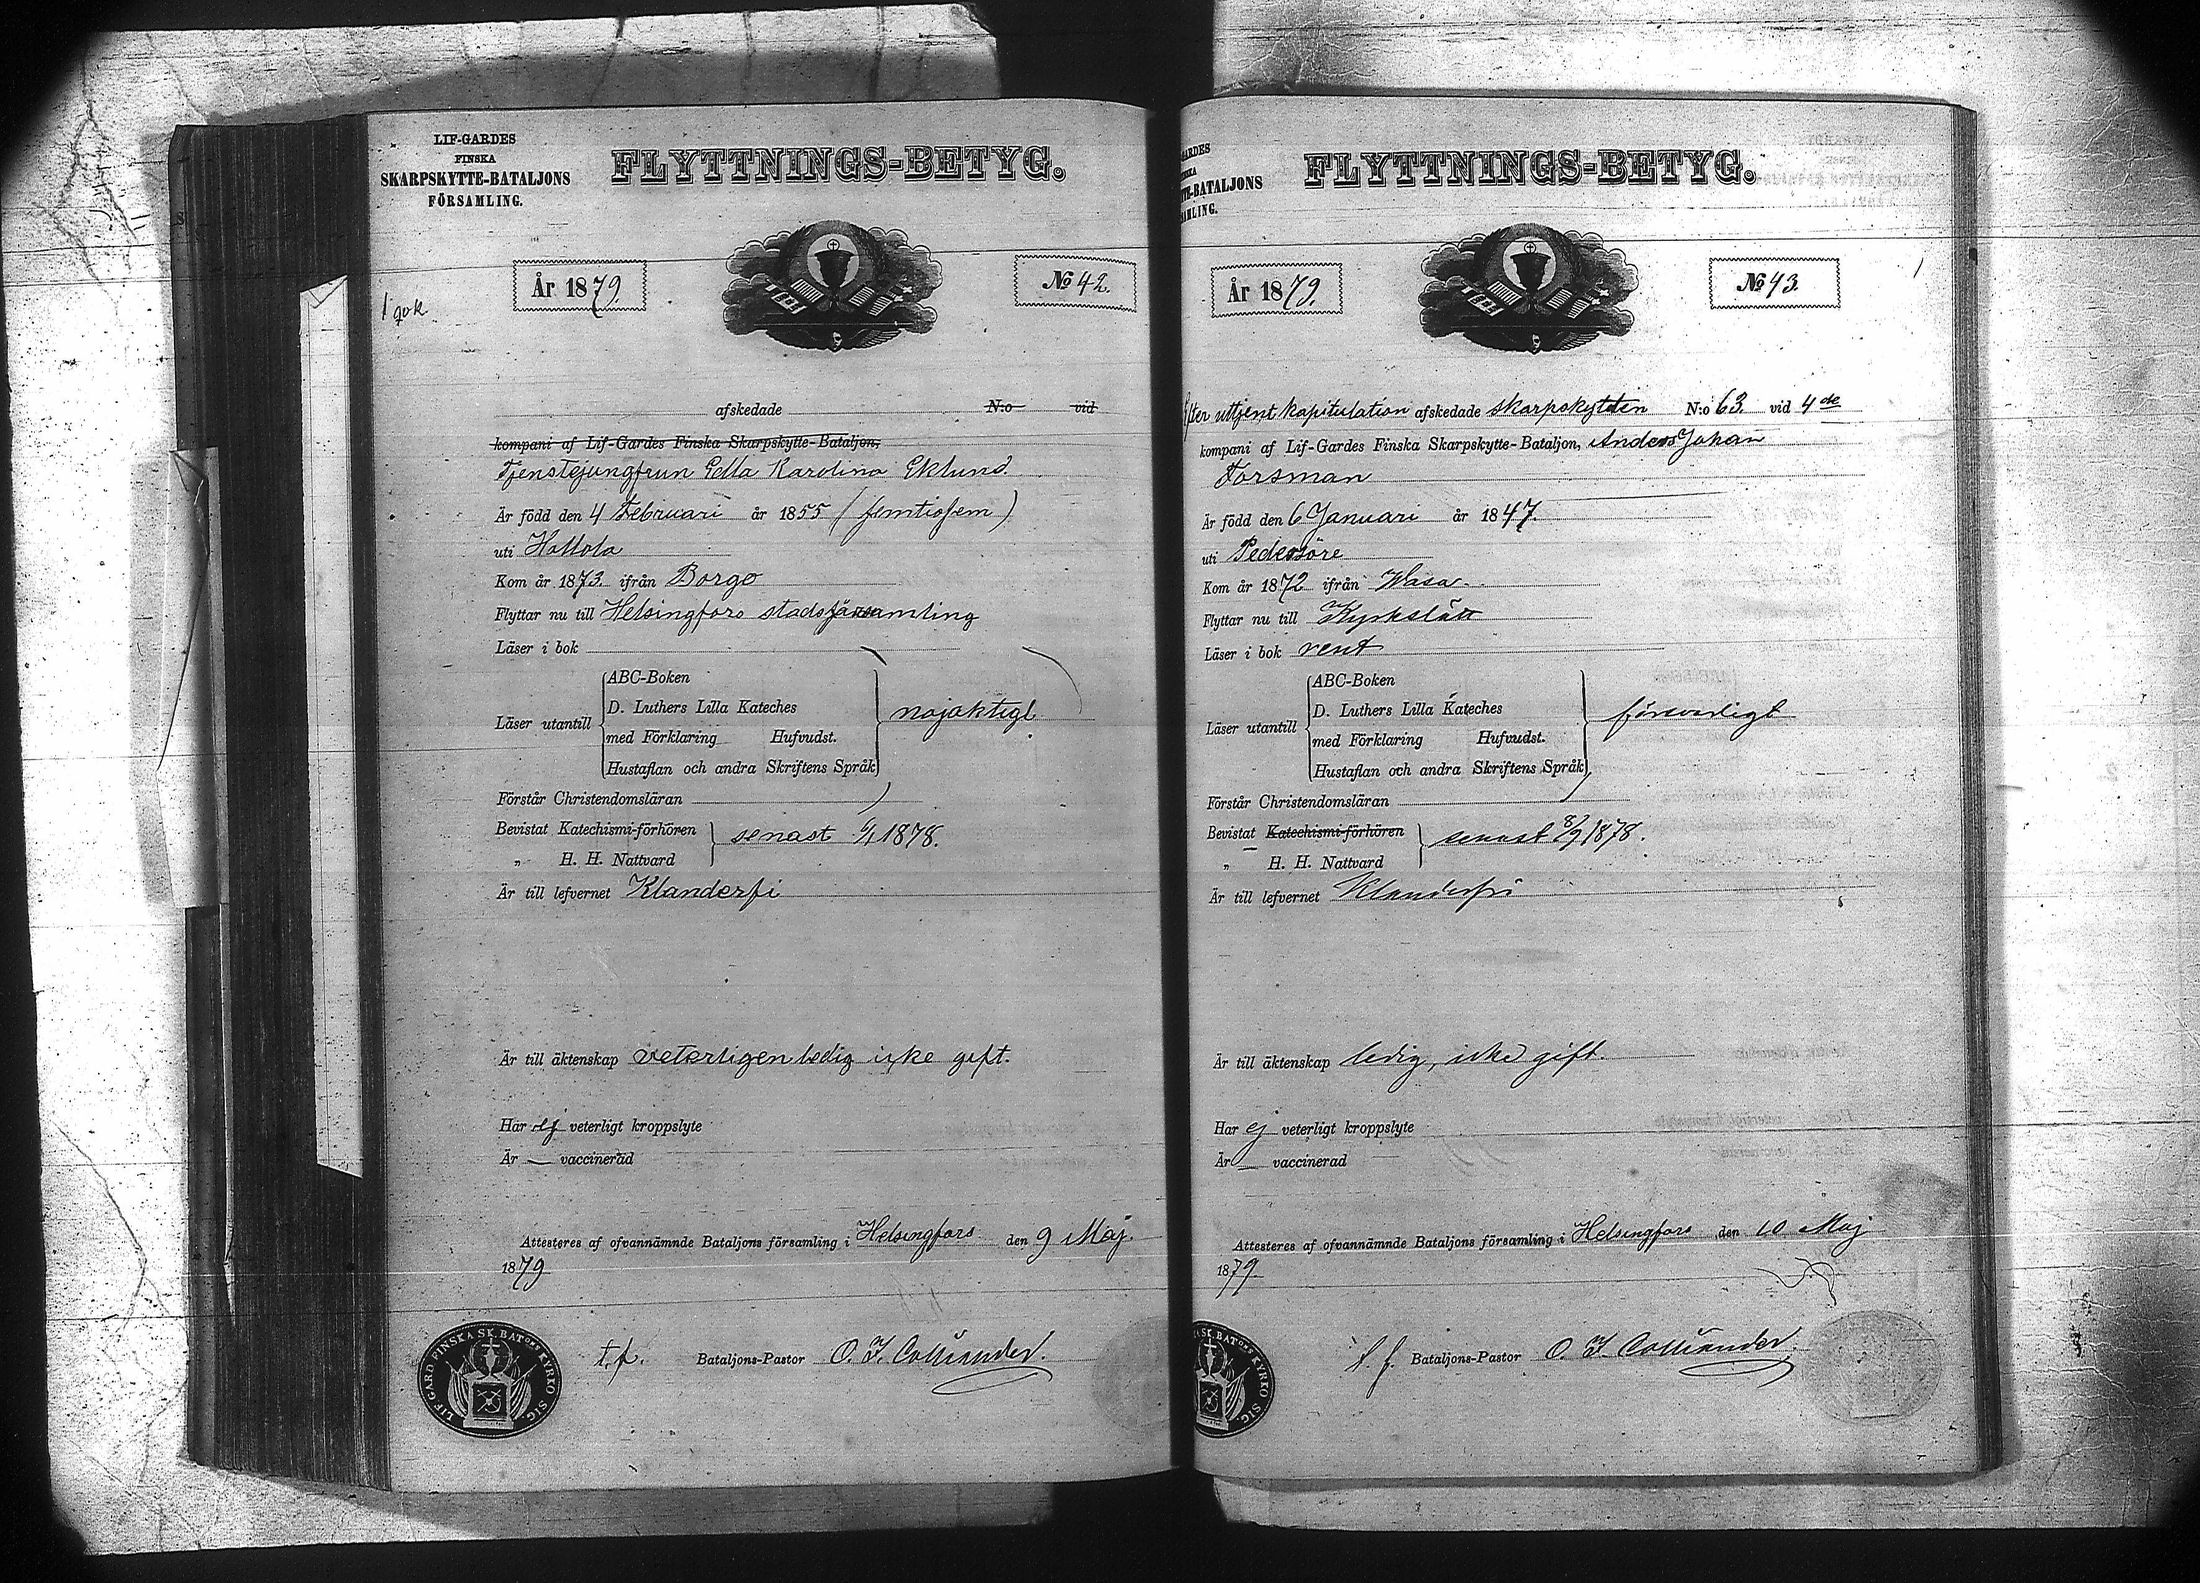 LIF-GARDES
FINSKA
SKARPSKYTTE-BATALJONS
FÖRSAMLING.
FLYTTNINGS-BETYG.
År 1879.
No 42.
afskedade N:o vid
kompani af Lif-Gardes Finska Skarpskytte-Bataljon,
Tjenstejungfrun Edla Karolina Eklund
Är född den 4 Februari år 1855 (femtiofem)
uti Hollola
Kom år 1873. ifrån Borgo
Flyttar nu till Helsingfors stadsförsamling
Läser i bok
Läser utantill
ABC-Boken
D. Luthers Lilla Kateches
med Förklaring Hufvudst.
Hustaflan och andra Skriftens Språk
nojaktigt
Förstår Christendomsläran
Bevistat Katechismi-förhören
„ H. H. Nattvard
senast 1878.
Är till lefvernet Klanderfi
Är till äktenskap veterligen ledig icke gift.
Har ej veterligt kroppslyte
Är — vaccinerad
Attesteres af ofvannämnde Bataljons församling i Helsingfors den 9 Maj.
1879
t.f. Bataljons-Pastor O. I. Colliander.
LIF. GARD FINSKA SK. BATons KYRKO SIG.
GARDES
SKA
TTE-BATALJONS
AMLING.
FLYTTNINGS-BETYG.
År 1879.
No 43.
Efter uttjent kapitulation afskedade skarpskytten N:o 63. vid 4de
kompani af Lif-Gardes Finska Skarpskytte-Bataljon, Anders Johan
Forsman
Är född den 6 Januari år 1847.
uti Pedersöre
Kom år 1872 ifrån Wasa.
Flyttar nu till Kyrkslätt
Läser i bok rent
Läser utantill
ABC-Boken
D. Luthers Lilla Kateches
med Förklaring Hufvudst.
Hustaflan och andra Skriftens Språk
försvarligt
Förstår Christendomsläran
Bevistat Katechismi-förhören
„ H. H. Nattvard
senast 8/9 1878.
Är till lefvernet Klanderfri
Är till äktenskap ledig, icke gift.
Har ej veterligt kroppslyte
Är — vaccinerad
Attesteres af ofvannämnde Bataljons församling i Helsingfors den 10 Maj
1879.
t.f. Bataljons-Pastor O. I. Colliander.
SK. BATons KYRKO SIG.